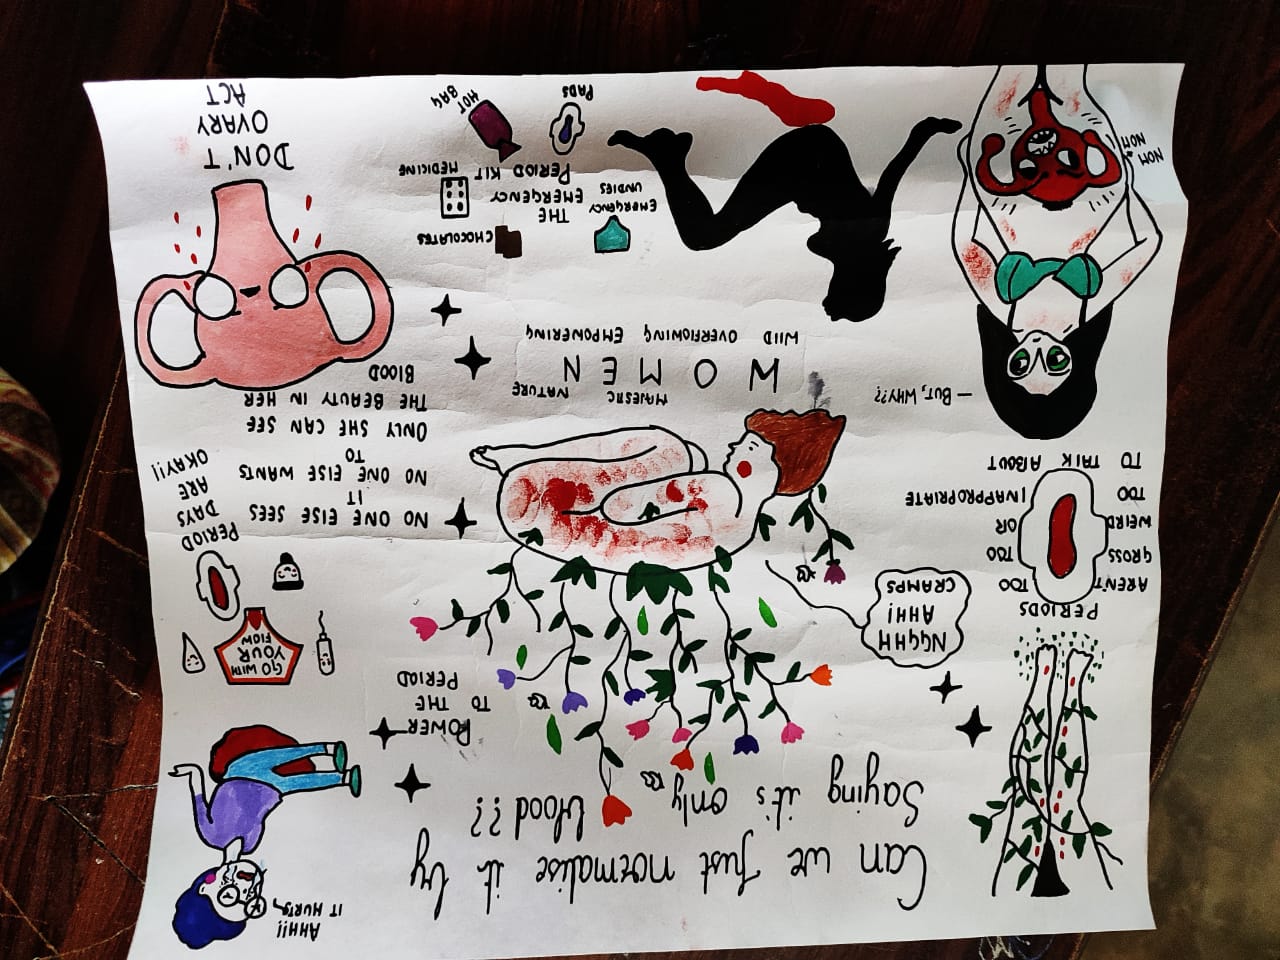 Can we Just normalise it by
Saying it's only blood??
AHH!!
IT HURTS
PERIODS
AREN'T TOO
GROSS TOO
WEIRD OR
TOO INAPPROPRIATE
TO TALK ABOUT
NGGHH
AHH!
CRAMPS
POWER
TO THE
PERIOD
GO WITH
YOUR
FLOW
PERIOD
DAYS
ARE
OKAY!!
NO ONE ELSE SEES
IT
NO ONE ELSE WANTS
TO
ONLY SHE CAN SEE
THE BEAUTY IN HER
BLOOD
— BUT, WHY??
MAJESTIC NATURE
WOMEN
WILD OVERFLOWING EMPOWERING
NOM
NOM
EMERGENCY
UNDIES
CHOCOLATES
THE
EMERGENCY
PERIOD KIT
MEDICINE
PADS
HOT
BAG
DON'T
OVARY
ACT